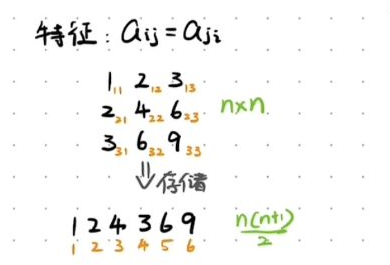 特征: aij = aji
1₁₁ 2₁₂ 3₁₃
2₂₁ 4₂₂ 6₂₃ n×n
3₃₁ 6₃₂ 9₃₃
⇓存储
1 2 4 3 6 9 n(n+1)/2
1 2 3 4 5 6